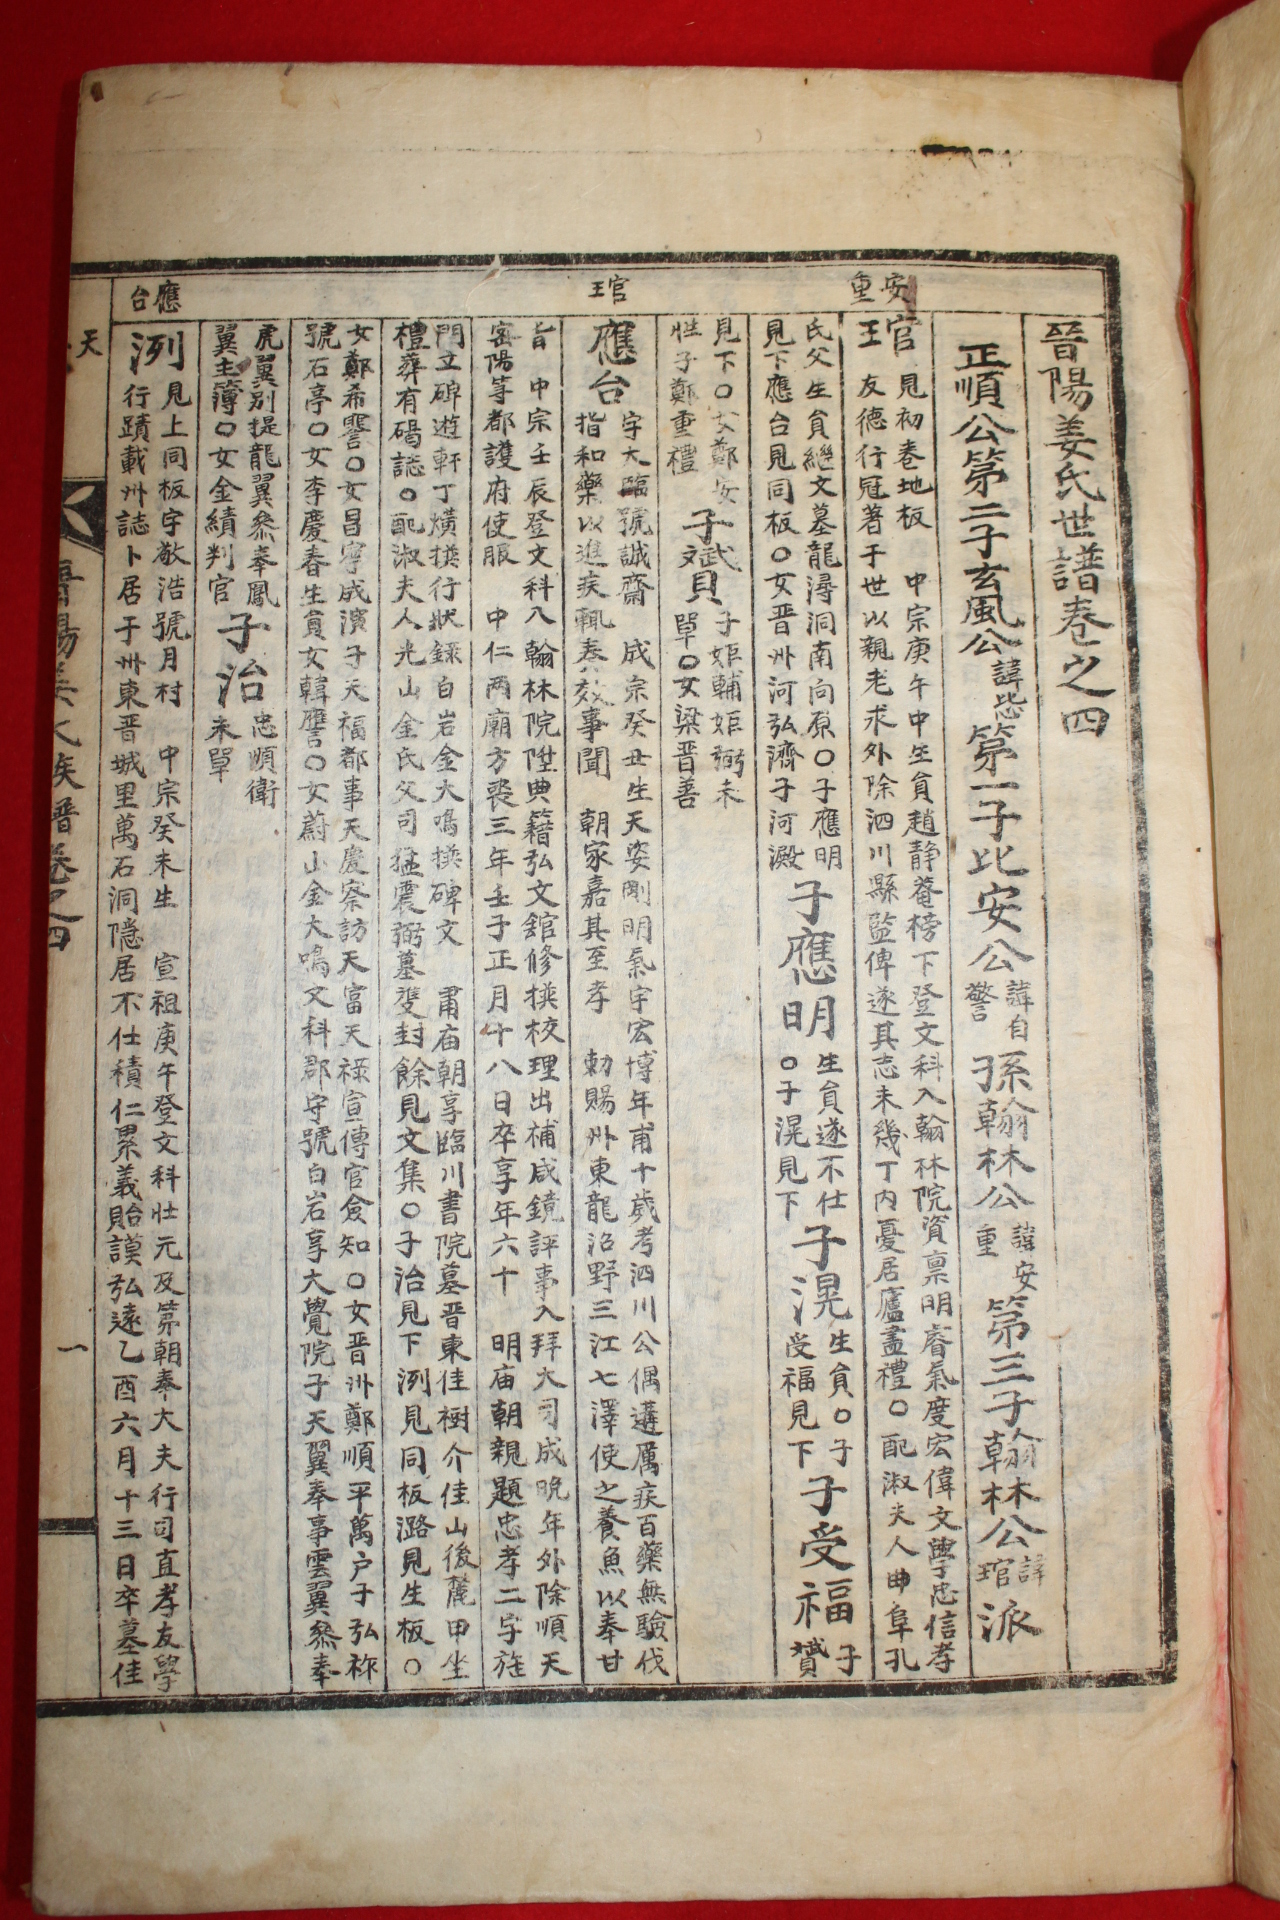 安重
官王
應台
晉陽姜氏世譜卷之四
正順公第二子玄風公諱毖第一子比安公諱自警孫翰林公諱安重第三子翰林公諱琯派
官王
見初卷地板 中宗庚午中生員趙静菴榜下登文科入翰林院資禀明睿氣度宏偉文學忠信孝
友德行冠著于世以親老求外除泗川縣監俾遂其志未幾丁內憂居廬盡禮○配淑夫人曲阜孔
氏父生員繼文墓龍潯洞南向原○子應明
見下應台見同板○女晋州河弘濟子河澱
子應明
生員遂不仕
○子滉見下
子滉
生員○子
受福見下
子受福
子
贇
見下○女鄭安
性子鄭重禮
子贇
子姖輔姖弼未
單○女梁晋善
應台
字大臨號誠齋 成宗癸丑生天姿剛明氣宇宏博年甫十歲考泗川公偶遘厲疾百藥無驗伐
指和藥以進疾輒奏效事聞 朝家嘉其至孝 勅賜州東龍沼野三江七澤使之養魚以奉甘
旨 中宗壬辰登文科入翰林院陞典籍弘文舘修撰校理出補咸鏡評事入拜大司成晩年外除順天
密陽等都護府使服 中仁両廟方喪三年壬子正月十八日卒享年六十 明庙朝親題忠孝二字旌
門立碑遊軒丁熿撰行狀錄白岩金大鳴撰碑文 肅庙朝享臨川書院墓晋東佳樹介佳山後麓甲坐
禮葬有碣誌○配淑夫人光山金氏父司猛震弼墓雙封餘見文集○子治見下洌見同板潞見生板○
女鄭希讐○女昌寧成濱子天福都事天慶察訪天富天祿宣傳官僉知○女晋州鄭順平萬户子弘祚
號石亭○女李慶春生員女韓應○女蔚山金大鳴文科郡守號白岩享大覺院子天翼奉事雲翼叅奉
虎翼別提龍翼叅奉鳳
翼主簿○女金績判官
子治
忠順衛
未單
洌
見上同板字敬浩號月村 中宗癸未生 宣祖庚午登文科壮元及第朝奉大夫行司直孝友學
行蹟載州誌卜居于州東晋城里萬石洞隱居不仕積仁累義貽謨弘遠乙酉六月十三日卒墓佳
天
晋陽姜氏族譜卷之四
一